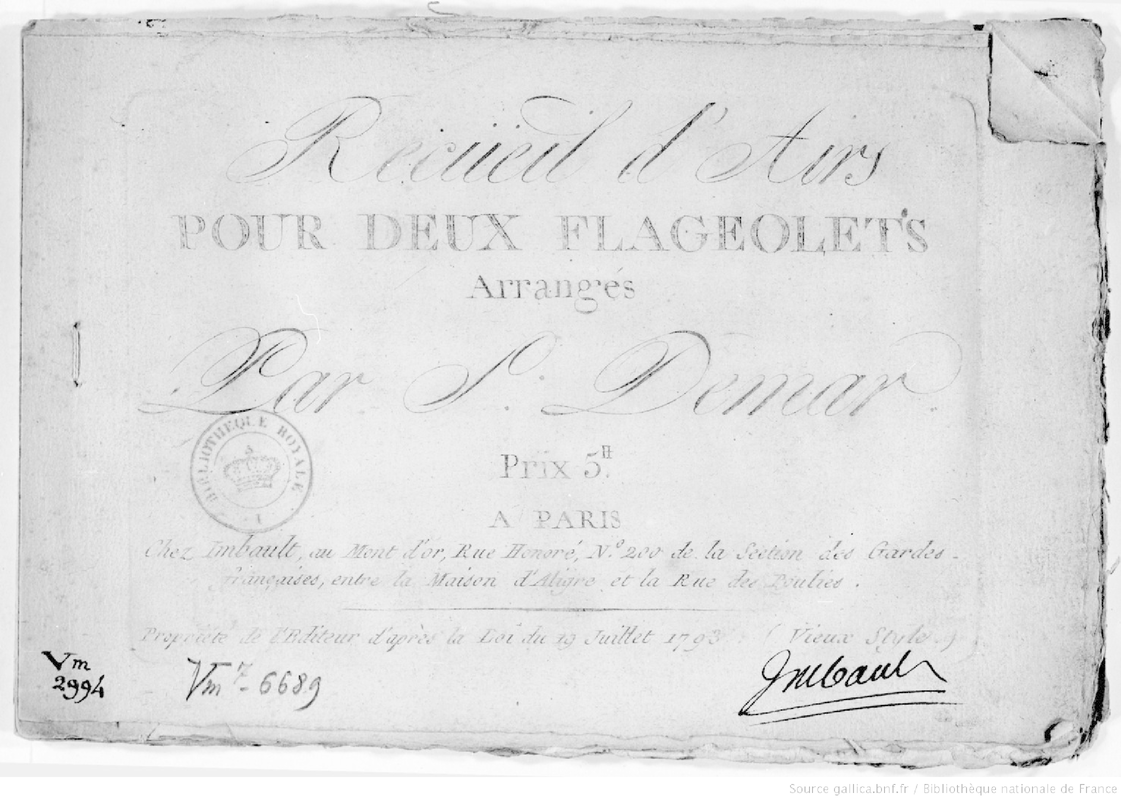 Recüeil d'Airs
POUR DEUX FLAGEOLETS
Arrangés
Par S. Demar.
BIBLIOTHEQUE ROYALE
Prix 5.tt
A PARIS
Chez Imbault, au Mont d'or, Rue Honoré, N.º 200 de la Section des Gardes-
françaises, entre la Maison d'Aligre et la Rue des Poulies.
Propriété de l'Editeur d'après la Loi du 19 Juillet 1793. (Vieux Style.)
Vm
2994
Vm 7 - 6689
Imbault
Source gallica.bnf.fr / Bibliothèque nationale de France